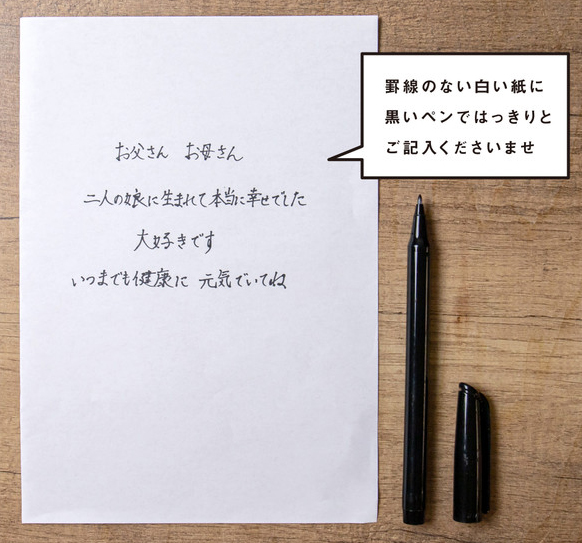 お父さん お母さん
二人の娘に生まれて本当に幸せでした
大好きです
いつまでも健康に 元気でいてね
罫線のない白い紙に
黒いペンではっきりと
ご記入くださいませ